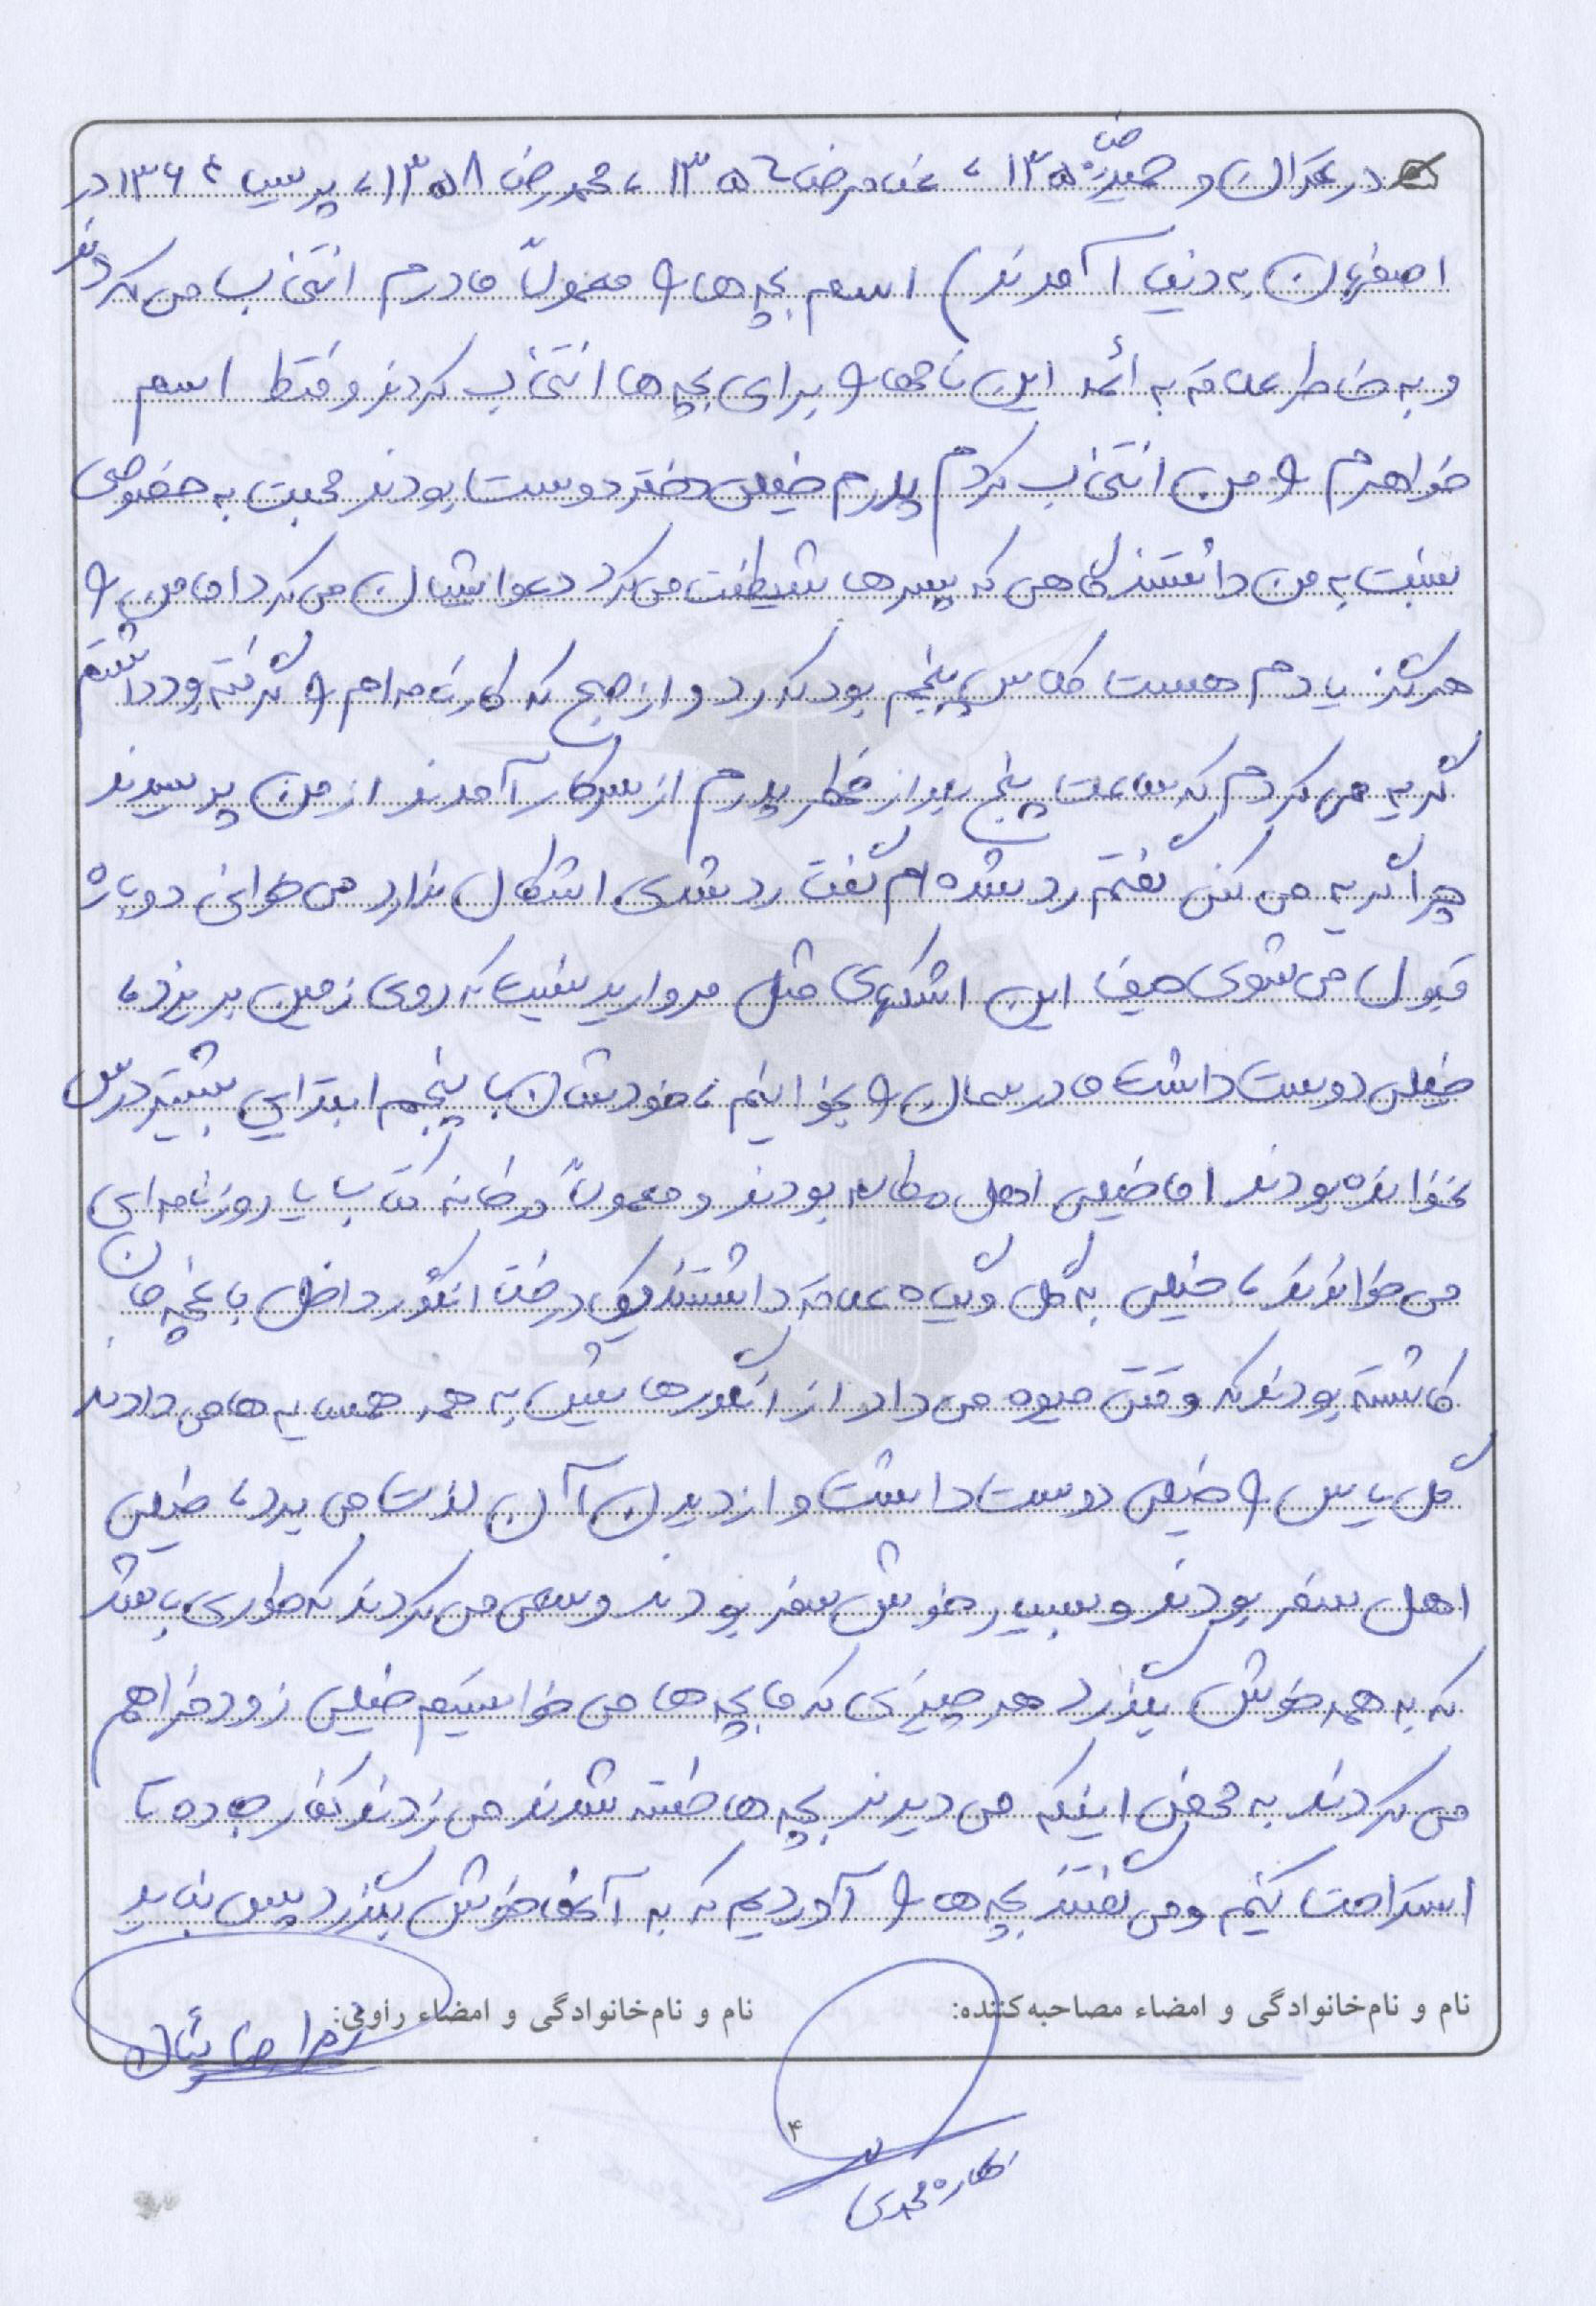 در تهران و حمیدرضا ۱۳۵۰، غلامرضا ۱۳۵۶، محمدرضا ۱۳۵۸، پریسا ۱۳۶۲ در
اصفهان به دنیا آمدند) اسم بچه‌ها را معمولاً مادرم انتخاب می‌کردند
و به خاطر علاقه به ائمه این نامها را برای بچه‌ها انتخاب کردند و فقط اسم
خواهرم را من انتخاب کردم پدرم خیلی دختر دوست بودند محبت به خصوصی
نسبت به من داشتند گاهی که پسرها شیطنت می‌کرد دعوایشان می‌کرد اما من را
هرگز یادم هست کلاس پنجم بود که رد و از صبح که کارنامه‌ام را گرفته بود داشتم
گریه می‌کردم که ساعت پنج بعد از ظهر پدرم از سرکار آمدند از من پرسیدند
چرا گریه می‌کنی گفتم رد شده‌ام گفت رد شدی اشکال ندارد می‌خوانی دوباره
قبول می‌شوی حیف این اشکهای مثل مروارید نیست که روی زمین بریزد،
خیلی دوست داشت ما درسمان را بخوانیم، خودشان با پنجم ابتدایی بیشتر درس
نخوانده بودند اما خیلی اهل مطالعه بودند و معمولاً در خانه کتاب یا روزنامه‌ای
می‌خواندند، خیلی به گل و گیاه علاقه داشتند یک درخت انگور داخل باغچه‌مان
کاشته بودند که وقتی میوه می‌داد از انگورهایش به همه همسایه‌ها می‌دادند
گل یاس را خیلی دوست داشت و از دیدن آن لذت می‌برد، خیلی
اهل سفر بودند و بسیار خوش سفر بودند و سعی می‌کردند که طوری باشد
که به همه خوش بگذرد هر چیزی که ما بچه‌ها می‌خواستیم خیلی زود فراهم
می‌کردند به محض اینکه می‌دیدند بچه‌ها خسته شدند می‌زدند کنار جاده تا
استراحت کنیم و می‌گفتند بچه‌ها را آوردیم که به آنها خوش بگذرد پس نباید
نام و نام‌خانوادگی و امضاء مصاحبه‌کننده: نام و نام‌خانوادگی و امضاء راوی:
زهرا
۴
محمدی